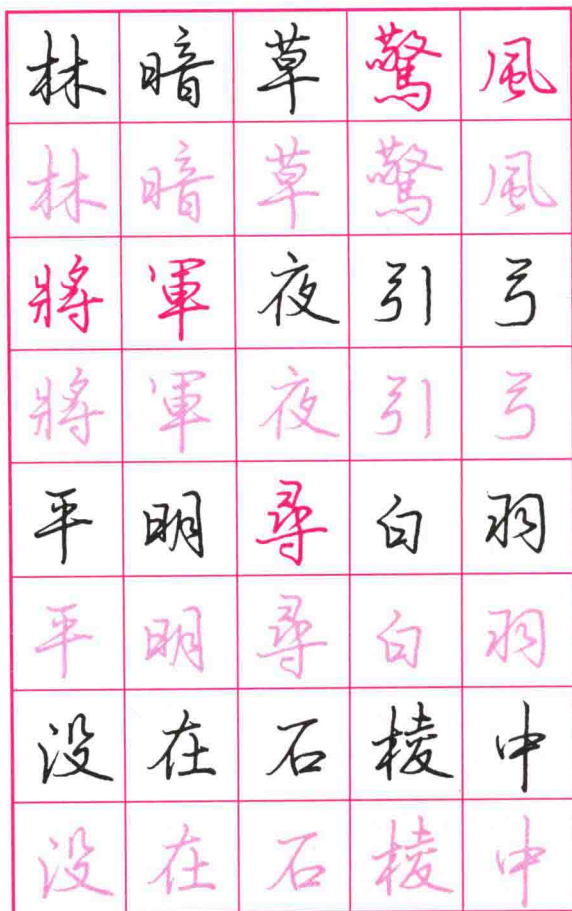 林暗草驚風
林暗草驚風
將軍夜引弓
將軍夜引弓
平明尋白羽
平明尋白羽
没在石棱中
没在石棱中